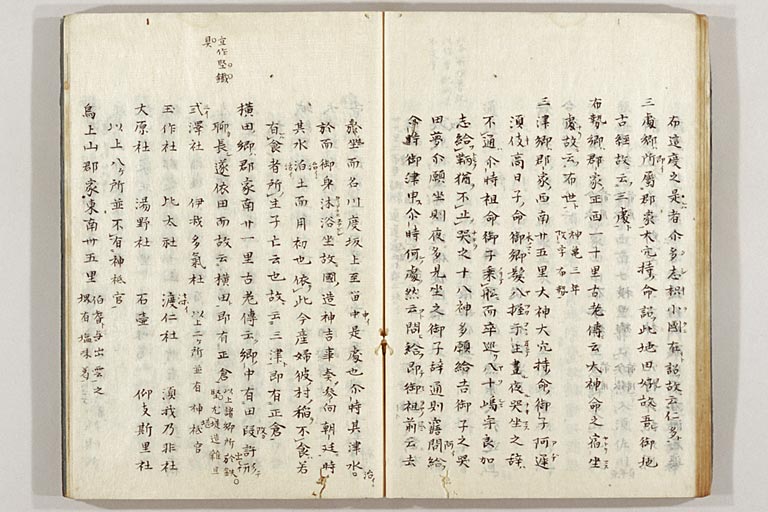 布遠度之是者介多志枳小國在詔故云仁多
三處郷所属郡家大穴持命詔此地田好故吾御地
古經故云三處
布勢郷郡家正西一十里古老傳云大神命之宿坐
處故云布世神亀三年改字布勢
三津郷郡家西南廿五里大神大穴持命御子阿遲
須伎高日子命御郷髪八握于生晝夜哭坐之辞
不通介時祖命御子乗舩而率巡八十嶋宇良加
志給鞆猶不止哭之十八神多願給吉御子之哭
田夢介願坐則夜多見坐之御子辞通則寤問給
介時御津申介時何處然云問給即御祖前云去
於坐而名川度坂上至留中是處也介時其津水治
於而御身沐浴坐故國造神吉事奏参向朝廷時
其水泊土而用初也依此今産婦彼村稻不食若
有食者所生子亡云也故云三津即有正倉
横田郷郡家南廿一里古老傳云郷中有田段許形
聊長遂依田而故云横田即有正倉以上諸郷所出鉄堅尤堪造雑具
弐澤社 伊我多氣社以上二所並有神祇官
玉作社 比太社 湏仁社 湏我乃非社
大原社 湯野社 石壷社 仰支斯里社
以上八所並不有神祇官
鳥上山郡家東南卅五里伯耆与出雲之堺有塩味葛
宜作堅鐵
具